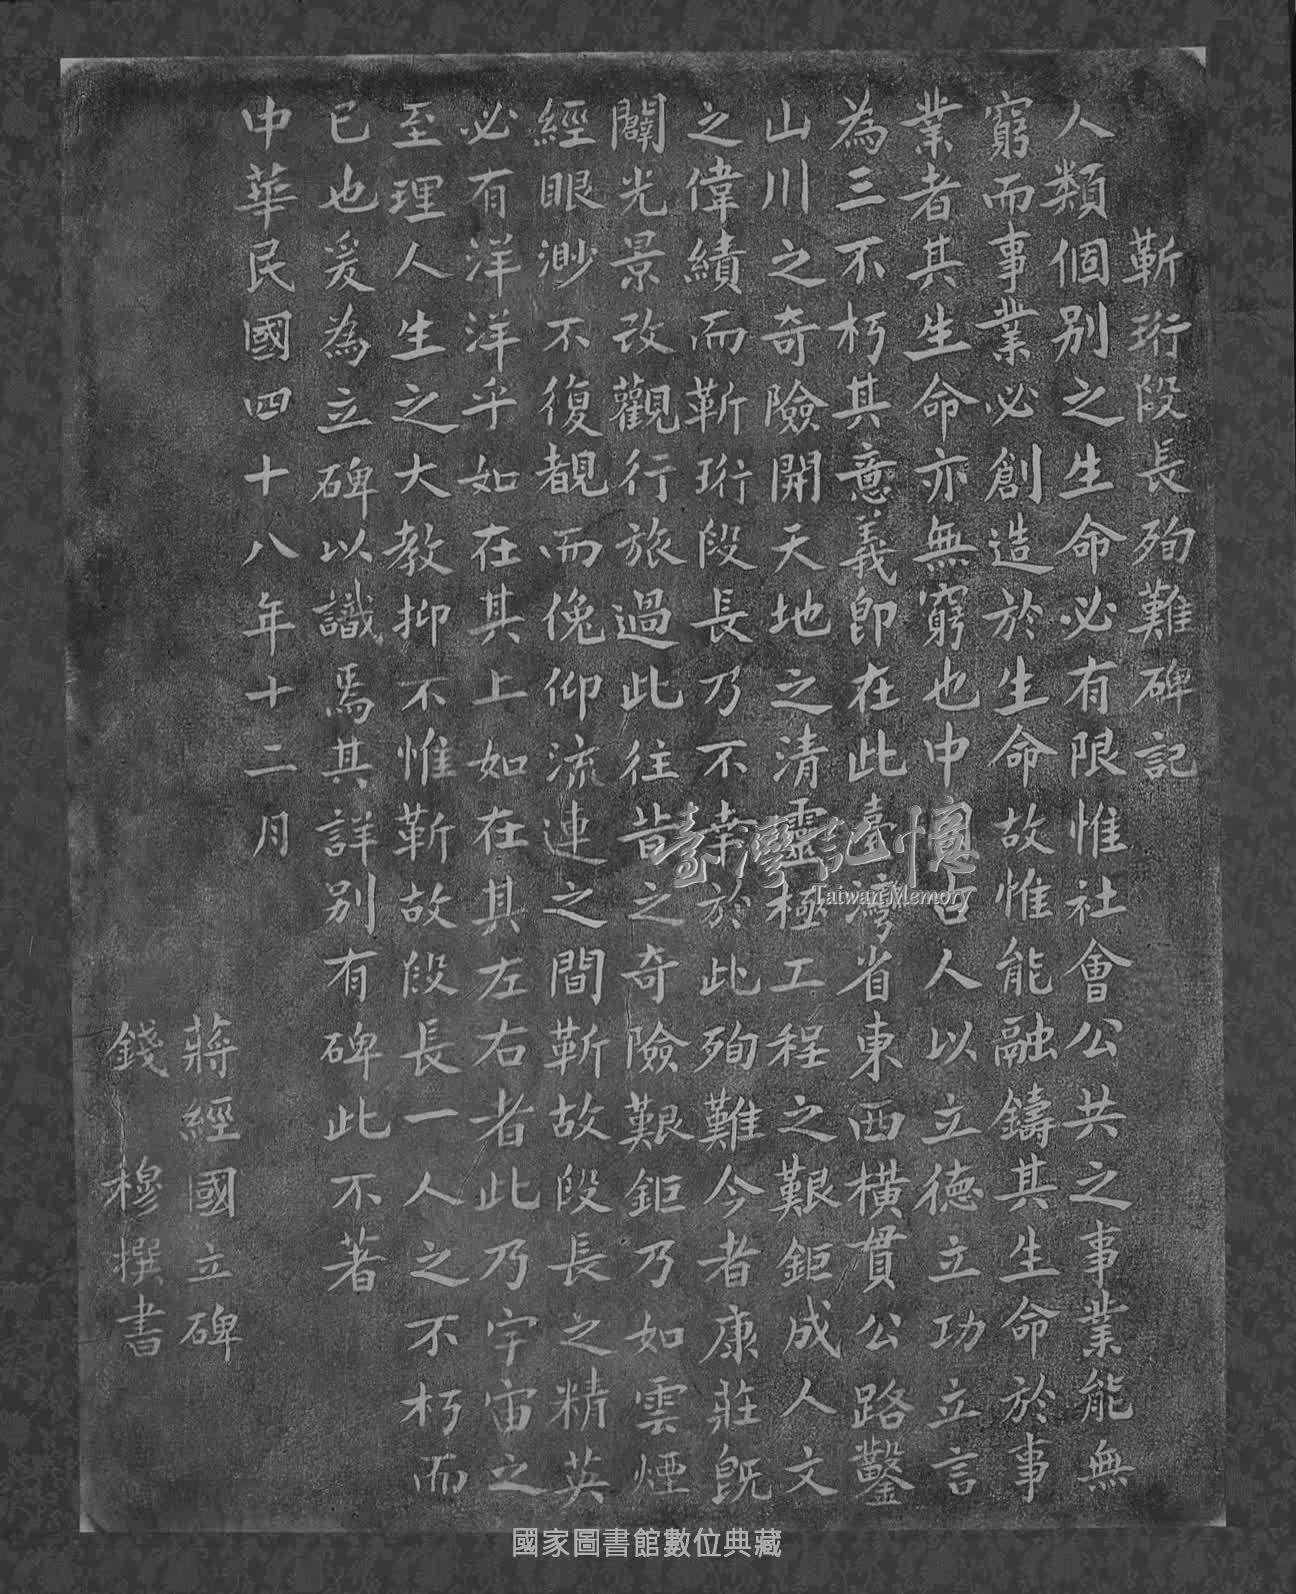 靳珩段長殉難碑記
人類個別之生命必有限惟社會公共之事業能無
窮而事業必創造於生命故惟能融鑄其生命於事
業者其生命亦無窮也中國古人以立德立功立言
為三不朽其意義即在此臺灣省東西橫貫公路鑿
山川之奇險開天地之清靈極工程之艱鉅成人文
之偉績而靳珩段長乃不幸於此殉難今者康莊既
闢光景改觀行旅過此往昔之奇險艱鉅乃如雲煙
經眼渺不復覩而俛仰流連之間靳故段長之精英
必有洋洋乎如在其上如在其左右者此乃宇宙之
至理人生之大教抑不惟靳故段長一人之不朽而
已也爰為立碑以識焉其詳別有碑此不著
中華民國四十八年十二月
蔣經國立碑
錢穆撰書
臺灣記憶
Taiwan Memory
國家圖書館數位典藏